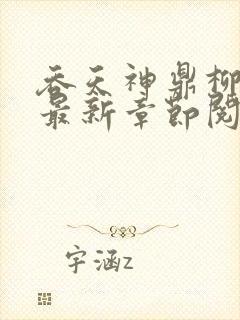 吞天神鼎柳
最新章节阅
宇涵z